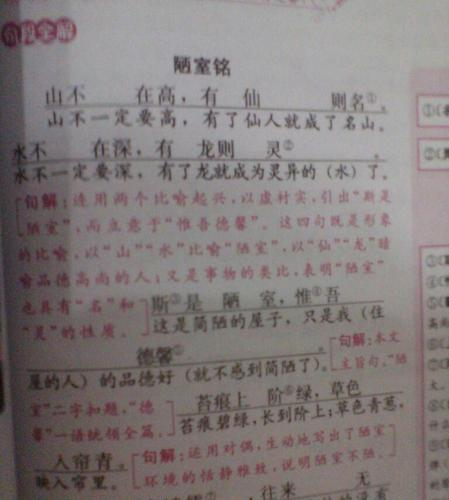 句段全解
陋室铭
山不 在高，有 仙 则名①。
山不一定要高，有了仙人就成了名山。
水不 在深，有 龙则 灵②。
水不一定要深，有了龙就成为灵异的（水）了。
[句解：连用两个比喻起兴，以虚衬实，引出“斯是
陋室”，而立意于“惟吾德馨”。这四句既是形象
的比喻，以“山”“水”比喻“陋室”，以“仙”“龙”暗
喻品德高尚的人；又是事物的类比，表明“陋室”
也具有“名”和
“灵”的性质。]
斯③是 陋 室，惟④吾
这是简陋的屋子，只是我（住
德馨⑤。
屋的人）的品德好（就不感到简陋了）。
[句解：本文
主旨句，“陋
室”二字扣题，“德
馨”一语统领全篇。]
苔痕上 阶⑥绿，草色
苔痕碧绿，长到阶上；草色青葱，
入帘青。
映入帘里。
[句解：运用对偶，生动地写出了陋室
环境的恬静雅致，说明陋室不陋。]
往来 无